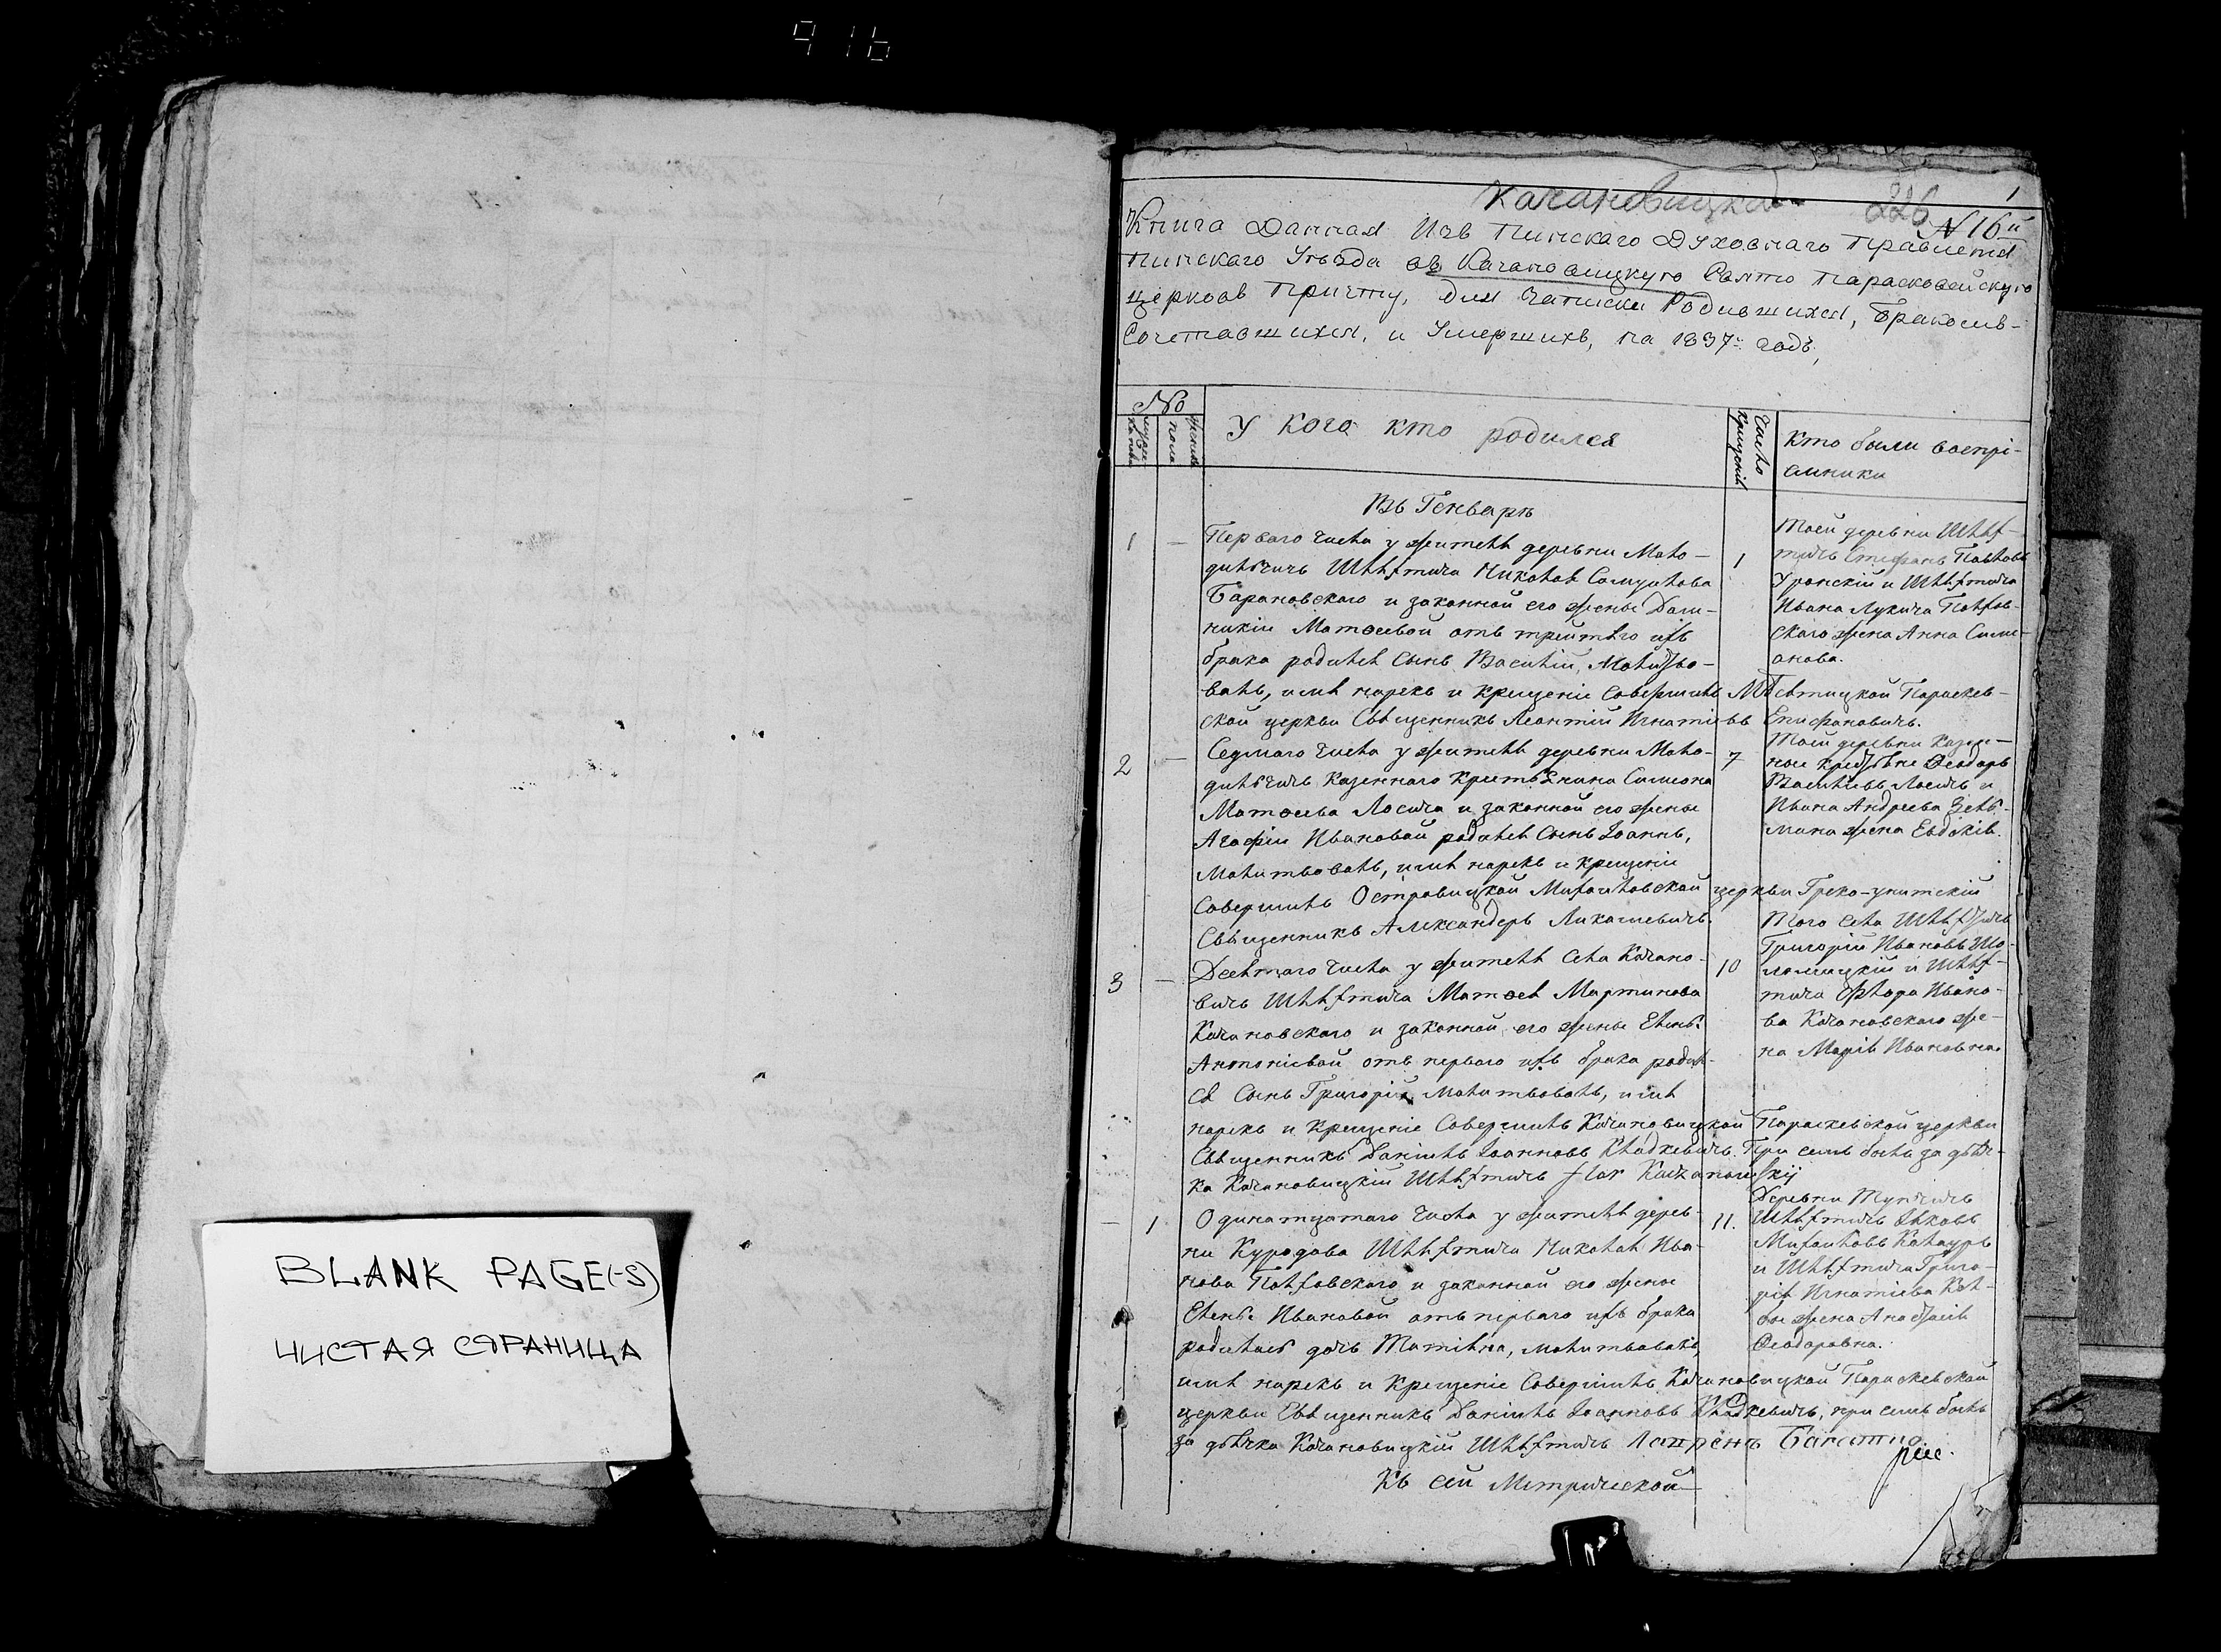 916
BLANK PAGE(-S)
ЧИСТАЯ СТРАНИЦА
Качановицкая
226
1
N 16й
Книга Данная Изъ Пинскаго Духовнаго Правленія
Пинскаго Уѣзда въ Качановицкую Свято Парасковейскую
церковь Причту, для Записки Родившихся, Бракомъ-
Сочетавшихся, и Умершихъ, на 1837й годъ,
№
мужес
ка пола
женска
пола
У кого кто родился
Число
крещенія
Кто были воспрі-
емники
Въ Генварѣ
1 — Перваго числа у жителя деревни Моло-
дильчичь Шляхтича Николая Самуйлова
Барановскаго и законной его жены Доми-
никіи Матѳеевой отъ третьяго ихъ
брака родился Сынъ Василій, Молитво-
валъ, имя нарекъ и крещеніе Совершилъ
ской церкви Священникъ Леонтій Игнатіевъ Епифановичъ.
1
Тоей деревни Шлях-
тичь Стефанъ Павловъ
Уронскій и Шляхтича
Ивана Лукича Полхов-
скаго жена Анна Симе-
онова.
Парескев-
2 — Седмаго числа у жителя деревни Моло-
дильчичь Казеннаго Крестьянина Симеона
Матѳеева Лосича и законной его жены
Агафіи Ивановой родился Сынъ Іоаннъ,
Молитвовалъ, имя нарекъ и крещеніе
Совершилъ Островицкой Михайловской церкви Греко-унитскій
Священникъ Александеръ Ликашевичъ.
7
Тоей деревни Казен-
ные крестьяне Ѳеодоръ
Васильевъ Лосичь и
Ивана Андреева
жена Евдокія.
3 — Десятаго числа у жителя Села Качано-
вичь Шляхтича Матѳея Мартинова
Качановскаго и законной его жены Елены
Антоніевой отъ перваго ихъ брака родил-
ся Сынъ Григорій, Молитвовалъ, имя
нарекъ и Крещеніе Совершилъ Качановицкой Параскевской церкви
Священникъ Даніилъ Іоанновъ Кладкевичъ. При семъ былъ за дьяч-
ка Качановицкій Шляхтичь Kaczanowskij
10
Того Села Шляхтичь
Григорій Ивановъ
и Шлях-
тича Ивано-
ва Качановскаго же-
на Марія Ивановна.
— 1 Одинатцатаго числа у жителя дерев-
ни Куродова Шляхтича Николая Ива-
нова Полховскаго и законной его жены
Елены Ивановой отъ перваго ихъ брака
родилась дочь Татіяна, молитвовалъ,
имя нарекъ и Крещеніе Совершилъ Качановицкой Параскевской
церкви Священникъ Даніилъ Іоанновъ Кладкевичъ, при семъ былъ
за дьячка Качановицкій Шляхтичь
11.
Деревни
Шляхтичь Яковъ
Михайловъ Колауръ
и Шляхтича Григо-
рія Игнатіева Кол-
бы жена Анастасія
Ѳеодоровна.
Къ сей Метрической